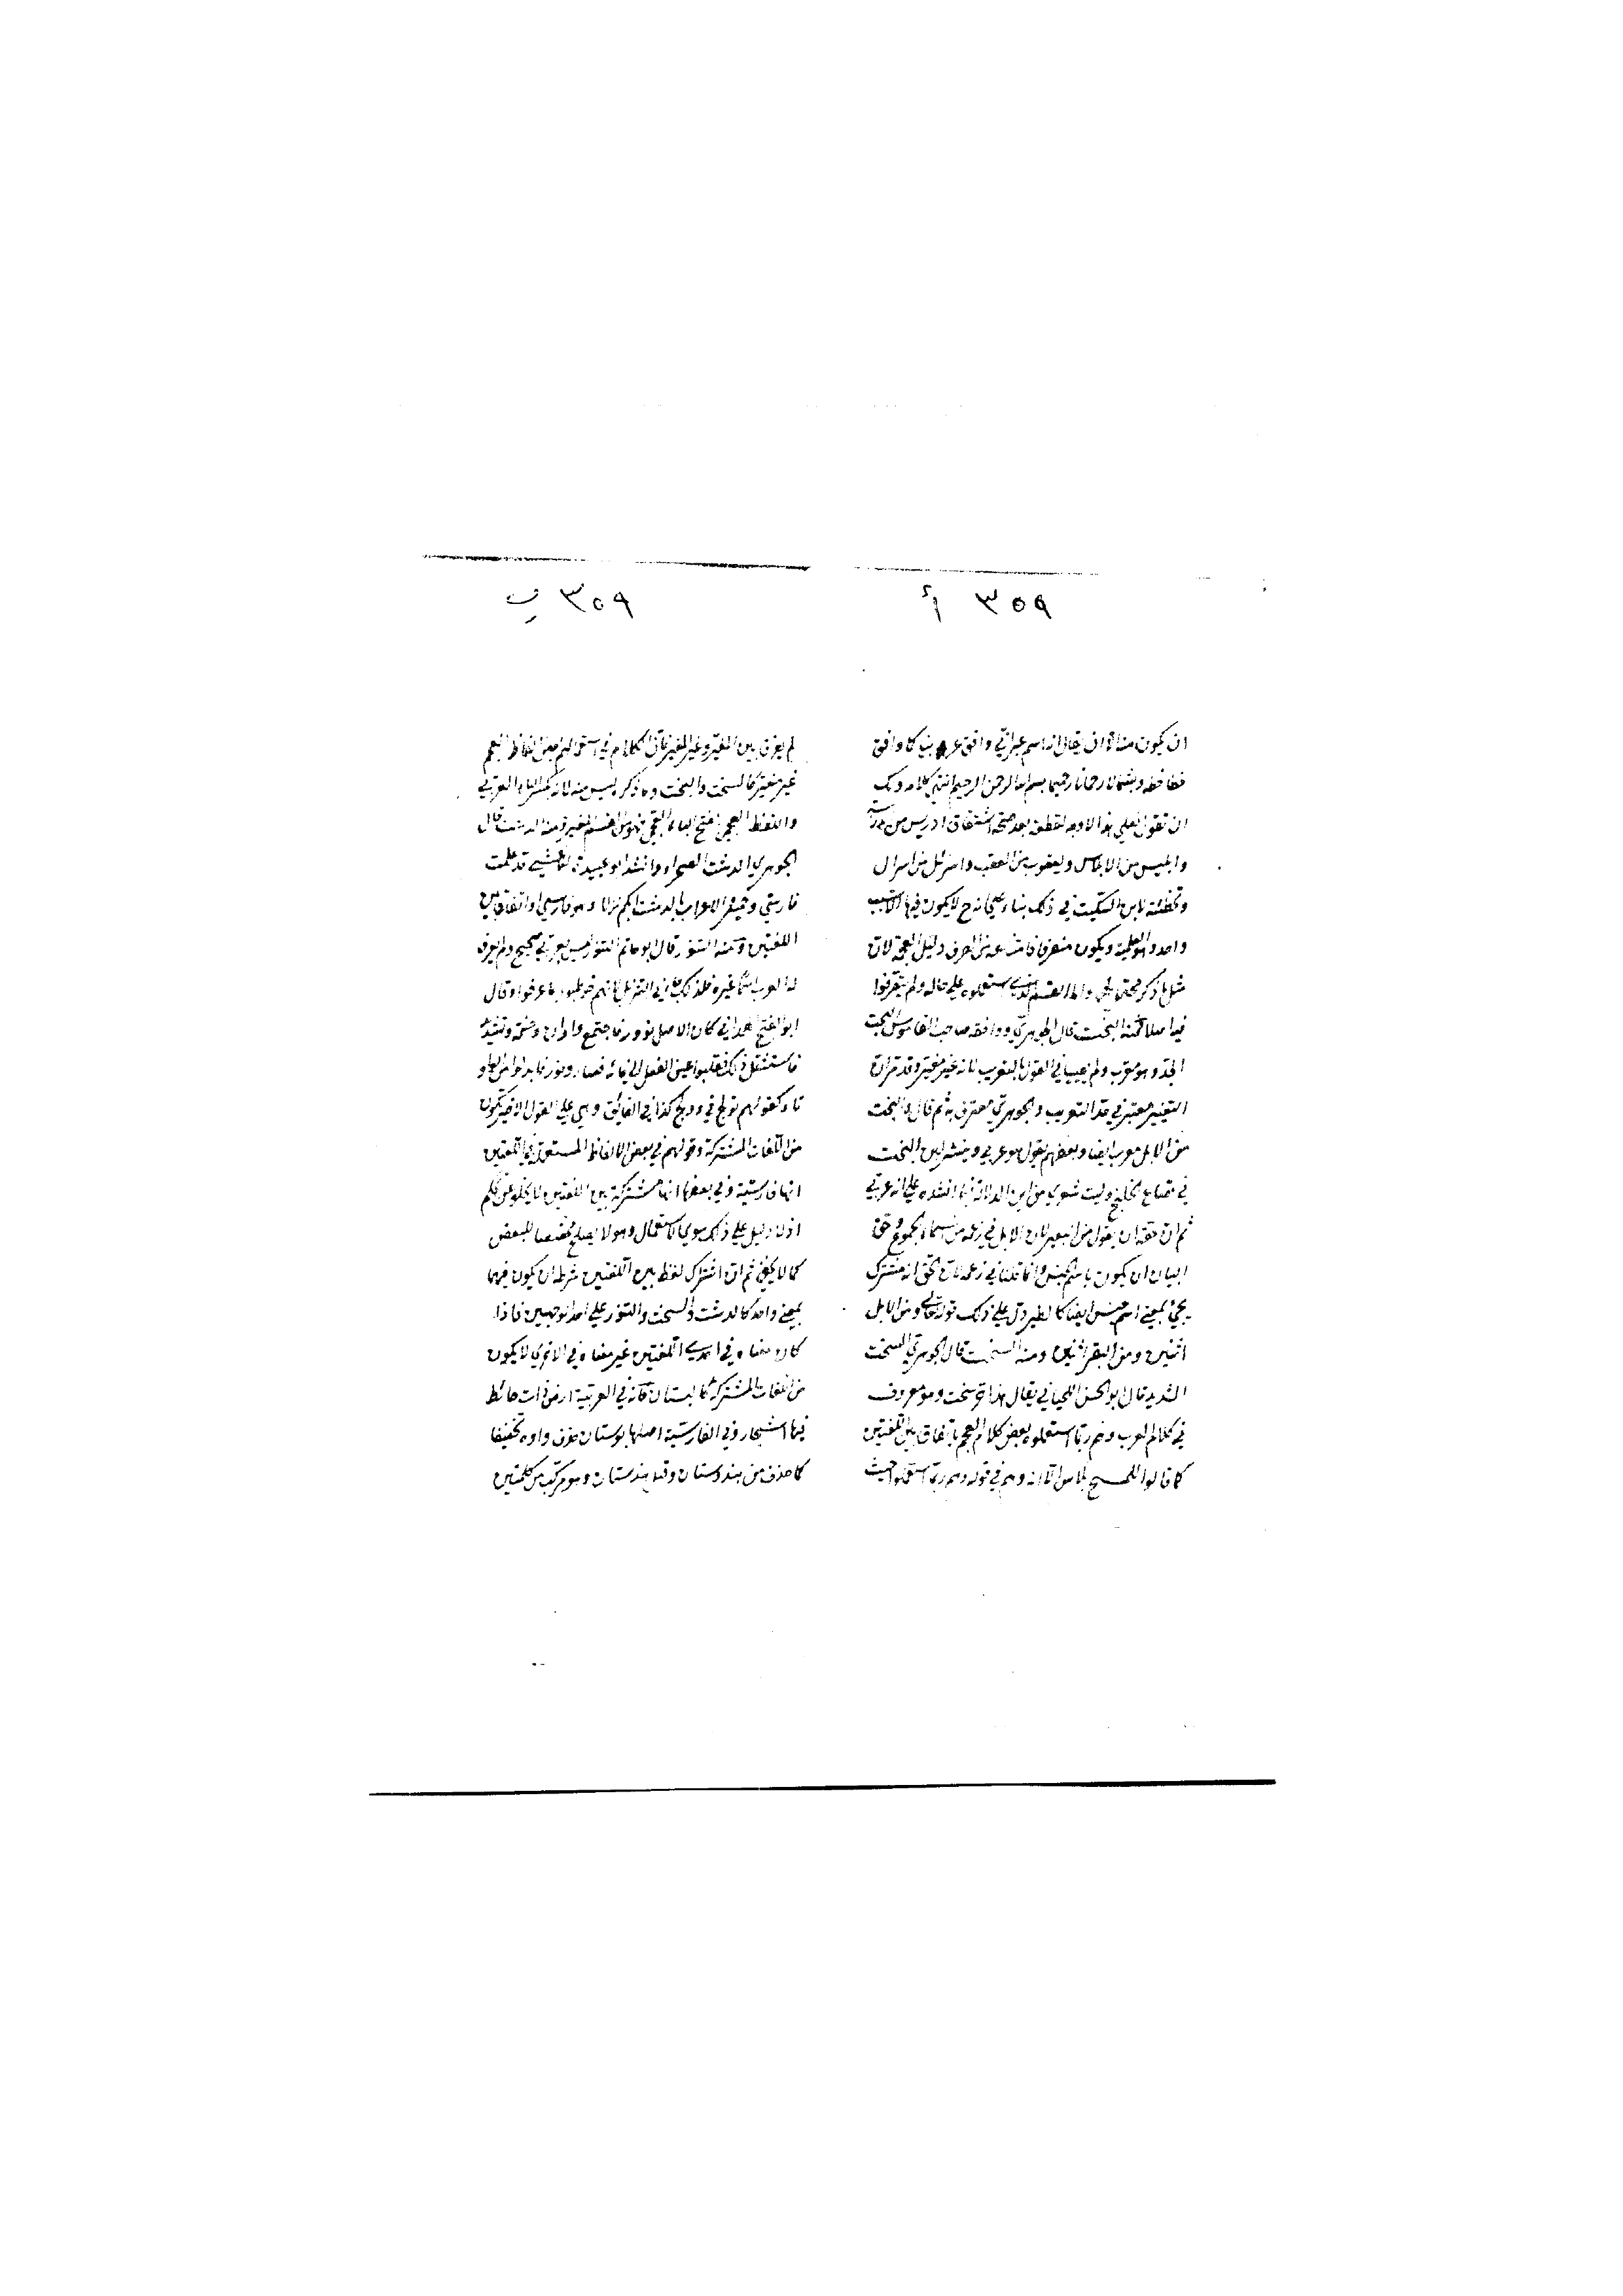 ٣٥٩ أ
ان يكون مثالا ان يقال انه اسم عبراني وافق عربيا كما وافق
حنطا حنطه وبشمالا رحمانا رحيما بسم الله الرحمن الرحيم انتهى كلامه ولك
ان تقول لعلي بهذا الاوجه لقطع بعد صحة اشتقاق ادريس من الدراسة
وابليس من الابلاس ويعقوب من العقب واسرائل من اسرال
وتخطئة لابن السكيت في ذلك بناء على انه ح لا يكون فيها الا سبب
واحد وهو العلمية ويكون منصرفا فامتناعه من الصرف دليل العجمة لان
مثل ما ذكر محتمل واما القسم الذي استعملوه على حاله ولم يتصرفوا
فيه اصلا فمنه البخت قال الجوهري ووافقه صاحب القاموس البخت
الجد وهو معرب ولم يصيبا في القول بالتعريب لانه غير مغير وقد مر ان
التغيير معتبر في حد التعريب والجوهري معترف به ثم قال والبخت
من الابل معرب ايضا وبعضهم يقول هو عربي وينشد لبن البخت
في قصاع الخلنج وليت شعري من اين الدلالة فيما انشده على انه عربي
ثم ان حقه ان يقول من البعير لان الابل في زعمه من اسماء الجموع وحق
البيان ان يكون باسم الجنس وانما قلنا في زعمه لان الحق انه مشترك
يجئ بمعنى اسم جنس ايضا كالطير دل على ذلك قوله تعالى ومن الابل
اثنين ومن البقر اثنين ومنه السخت قال الجوهري السخت
الشديد قال ابو الحسن اللحياني يقال هذا حر سخت وهو معروف
في كلام العرب وهم ربما استعملوه بعض كلام العجم باتفاق بين اللغتين
كما قالوا للمسح بلاس الا انه وهم في قوله وهم ربما استعملوا حيث
٣٥٩ ب
لم يفرق بين المغير وغير المغير فان الكلام في استعمالهم بعض الفاظ العجم
غير مغير كالسخت والبخت وما ذكر ليس منه لانه بكسر الباء العربي
واللفظ العجمي بفتح الباء العجمي فهو من القسم المغير ومنه الدشت قال
الجوهري الدشت الصحراء وانشد ابو عبيدة للاعشى قد علمت
فارس وحمير والاعراب بالدشت ايكم نزلا وهو فارسي او اتفاق بين
اللغتين ومنه التنور قال ابو حاتم التنور ليس بعربي صحيح ولم يعرف
له العرب اسما غيره فلذلك جاء في التنزيل لانهم خوطبوا بما عرفوا وقال
ابو الفتح الهمداني كان الاصل نوور فاجتمع واوان وضمة وتشديد
فاستثقل ذلك فقلبوا عين الفعل الى فائه فصار ونور فابدلوا من الواو
تاء كقولهم تولج في وولج كذا في الفائق وهي على القول الاخير يكون
من اللغات المشتركة وقولهم في بعض الالفاظ المستعملة في اللغتين
انها فارسية وفي بعضها انها مشتركة بين اللغتين لا يخلو عن تحكم
اذ لا دليل على ذلك سوى الاستعمال وهو لا يصلح مخصصا للبعض
كما لا يخفى ثم ان اشتراك لفظ بين اللغتين شرطه ان يكون فيهما
بمعنى واحد كالدشت والسخت والتنور على احد الوجهين فاذا
كان معناه في احدى اللغتين غير معناه في الاخرى لا يكون
من اللغات المشتركة كالبستان فانه في العربية ارض ذات حائط
فيها اشجار وفي الفارسية اصلها بوستان حذف واوه تخفيفا
كما حذف من هندوستان وقيل هندستان وهو مركب من كلمتين